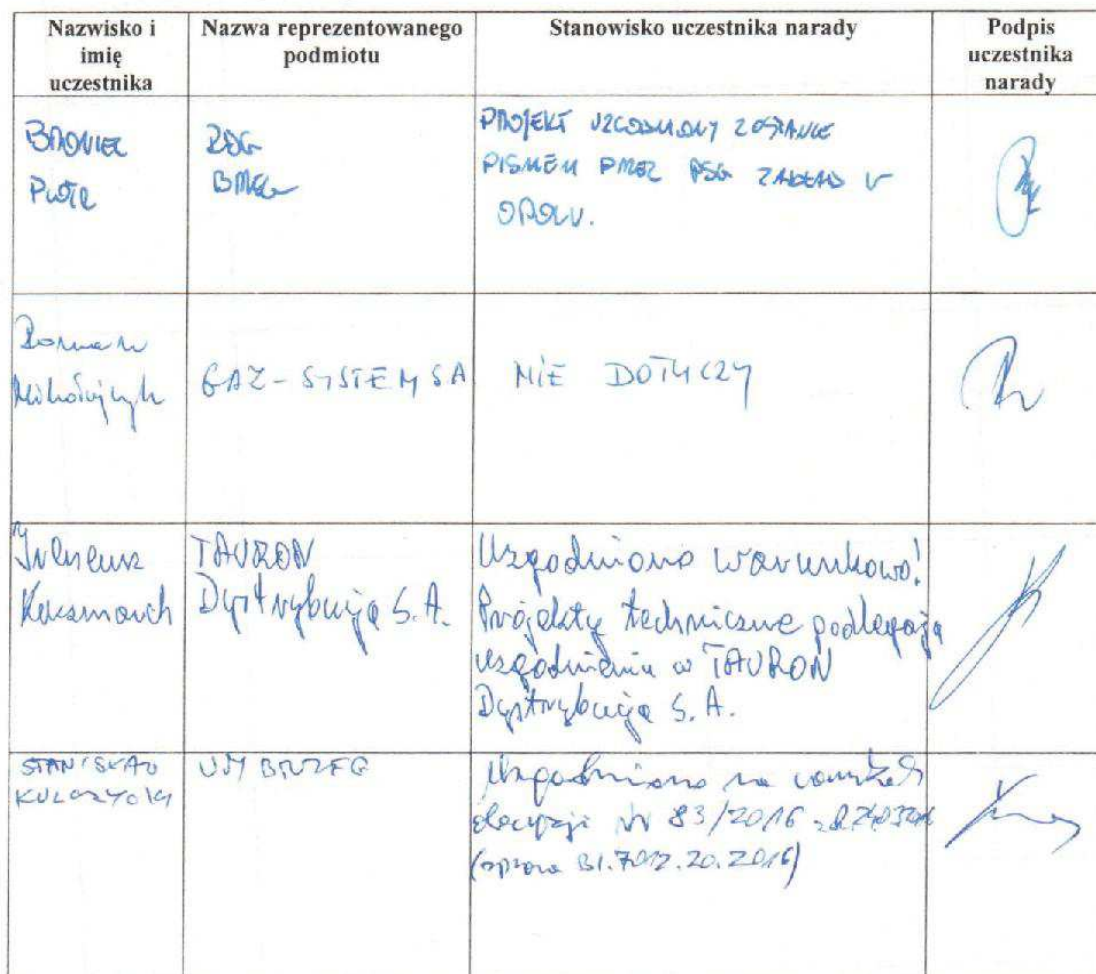 Nazwisko i
imię
uczestnika
Nazwa reprezentowanego
podmiotu
Stanowisko uczestnika narady
Podpis
uczestnika
narady
PIOTR
PROJEKT UZGODNIONY ZOSTANIE
PISMEM PRZEZ PSG ZAKŁAD W
OPOLU.
Roman
Mikołajczyk
GAZ-SYSTEM SA
NIE DOTYCZY
Ireneusz
TAURON
Dystrybucja S.A.
Uzgodniono warunkowo!
Projekty techniczne podlegają
uzgodnieniu w TAURON
Dystrybucja S.A.
STANISŁAW
UM BRZEG
Uzgodniono na
decyzji Nr 83/2016
(sprawa BI.7012.20.2016)